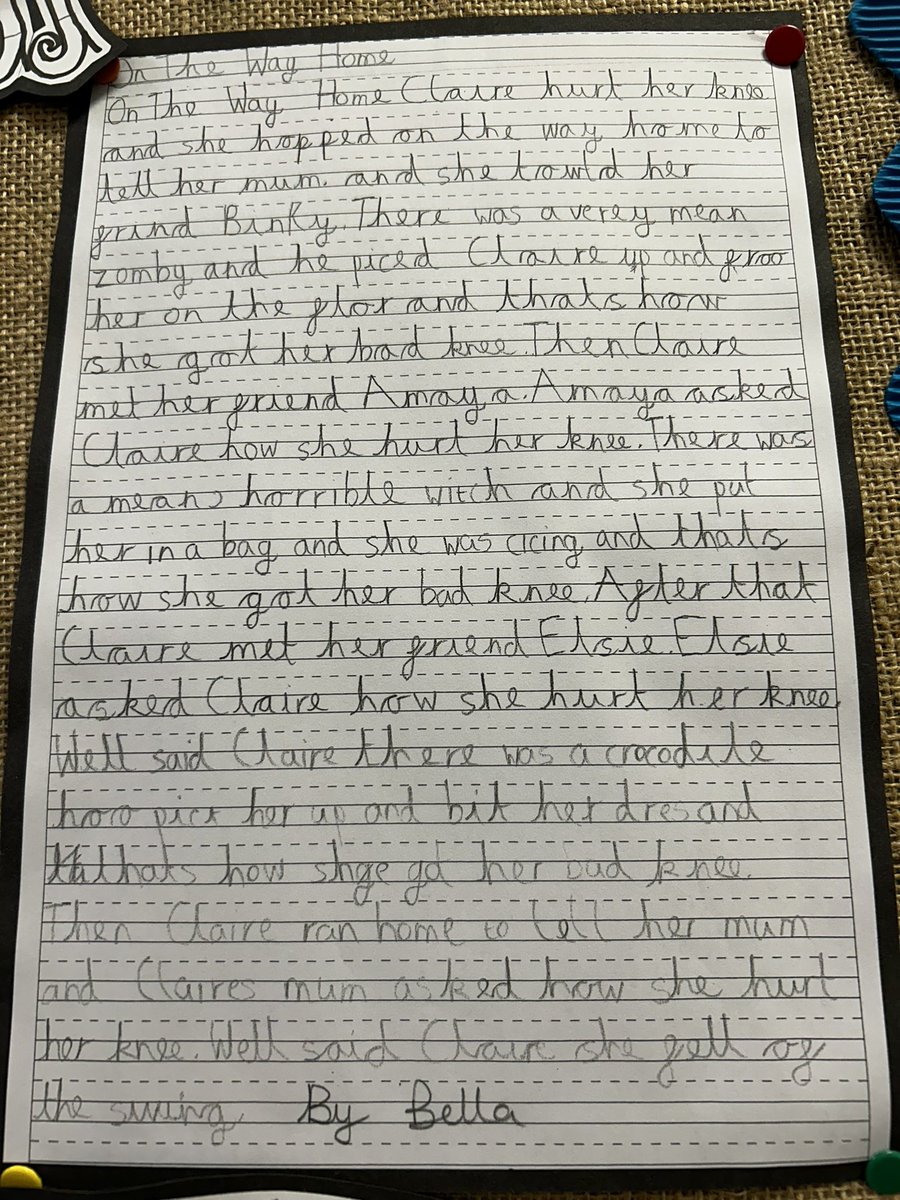 On The Way Home
On The Way Home Claire hurt her knee
and she hopped on the way home to
tell her mum. and she towld her
frind Binky. There was a verey mean
zomby and he piced Claire up and froo
her on the flor and thats how
she got her bad knee. Then Claire
met her friend Amaya. Amaya asked
Claire how she hurt her knee. There was
a mean, horrible witch and she put
her in a bag and she was cicing and thats
how she got her bad knee. After that
Claire met her friend Elsie. Elsie
asked Claire how she hurt her knee.
Well said Claire there was a crocodile
hoo pick her up and bit her dres and
thats how she got her bad knee.
Then Claire ran home to tell her mum
and Claires mum asked how she hurt
her knee. Well said Claire she fell of
the swing. By Bella